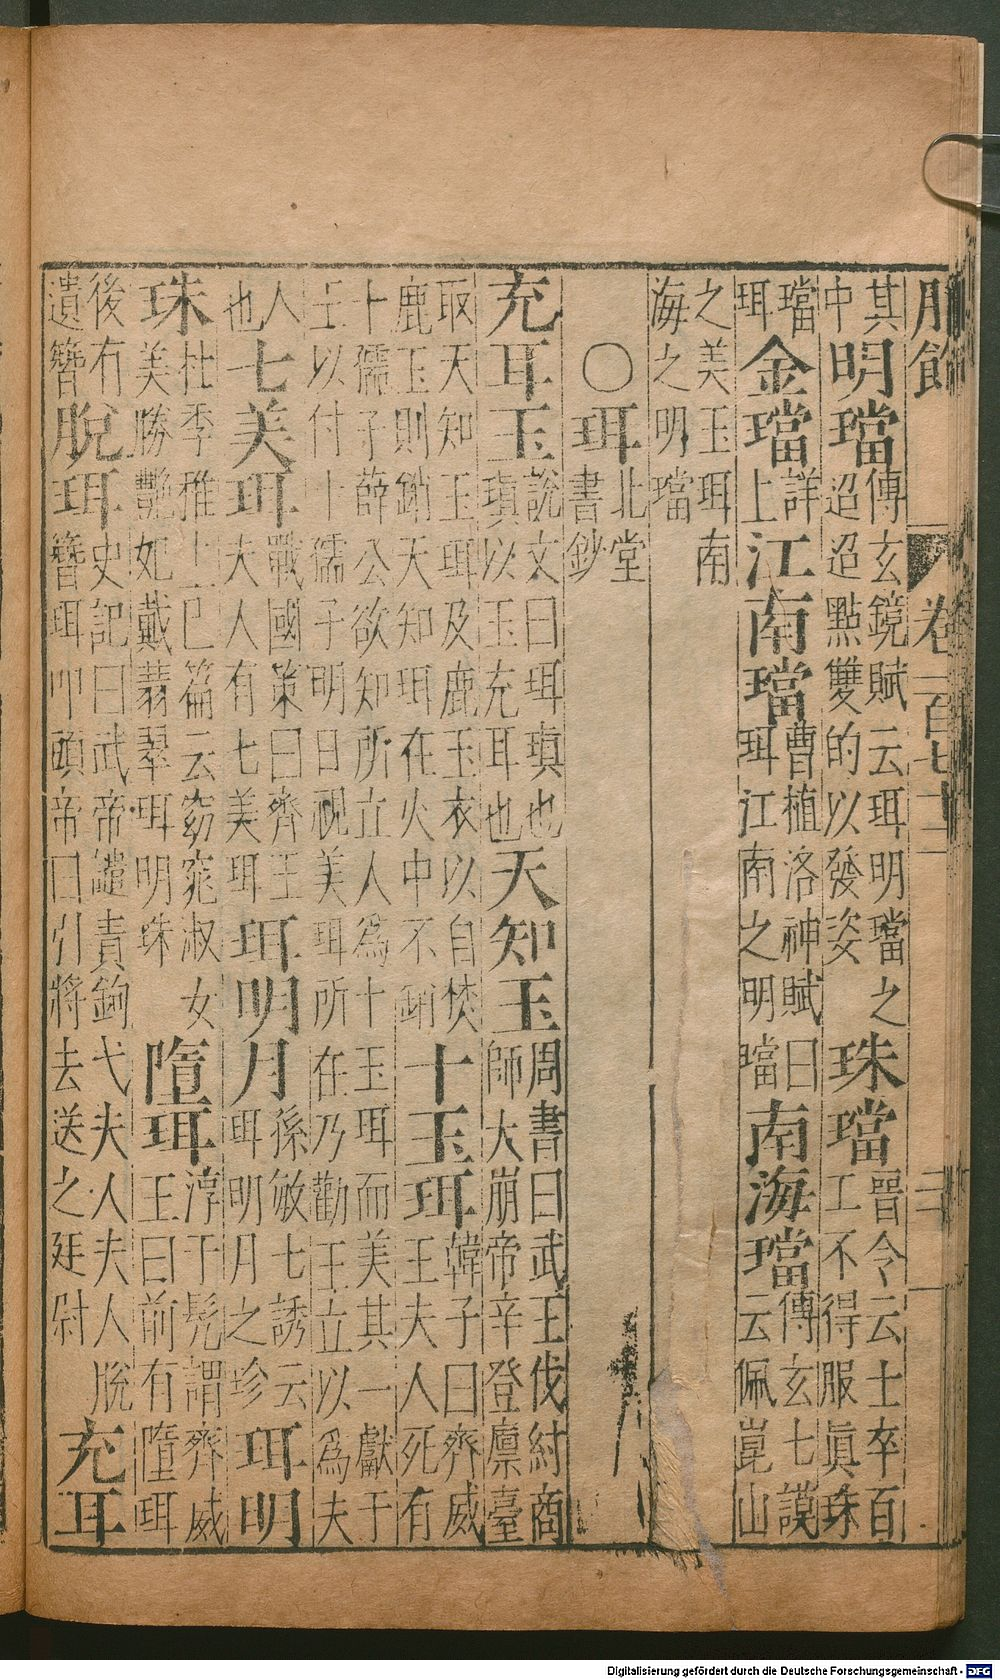 服飾 卷一百七十二 三
其中明璫傅玄鏡賦云珥明璫之迢迢點雙的以發姿珠璫晉令云士卒百工不得服眞珠
璫珥金璫詳上江南璫曹植洛神賦曰珥江南之明璫南海璫傅玄七謨云佩崑山
之美玉珥南海之明璫
〇珥北堂書鈔
充耳玉說文曰珥瑱也瑱以玉充耳也天知玉周書曰武王伐紂商師大崩帝辛登廪臺
取天知玉珥及鹿玉衣以自焚鹿玉則銷天知珥在火中不銷十玉珥韓子曰齊威王夫人死有
十孺子薛公欲知所立人爲十玉珥而美其一獻于王以付十孺子明日視美珥所在乃勸王立以爲夫
人也七美珥戰國策曰齊王夫人有七美珥珥明月孫敏七誘云珥明月之珍珥明
珠杜季雅上巳篇云窈窕淑女美勝艷妃戴翡翠珥明珠墮珥淳于髡謂齊威王曰前有墮珥
後有遺簪脫珥史記曰武帝譴責鉤弋夫人夫人脫簪珥叩頭帝曰引將去送之廷尉充耳
Digitalisierung gefördert durch die Deutsche Forschungsgemeinschaft - DFG